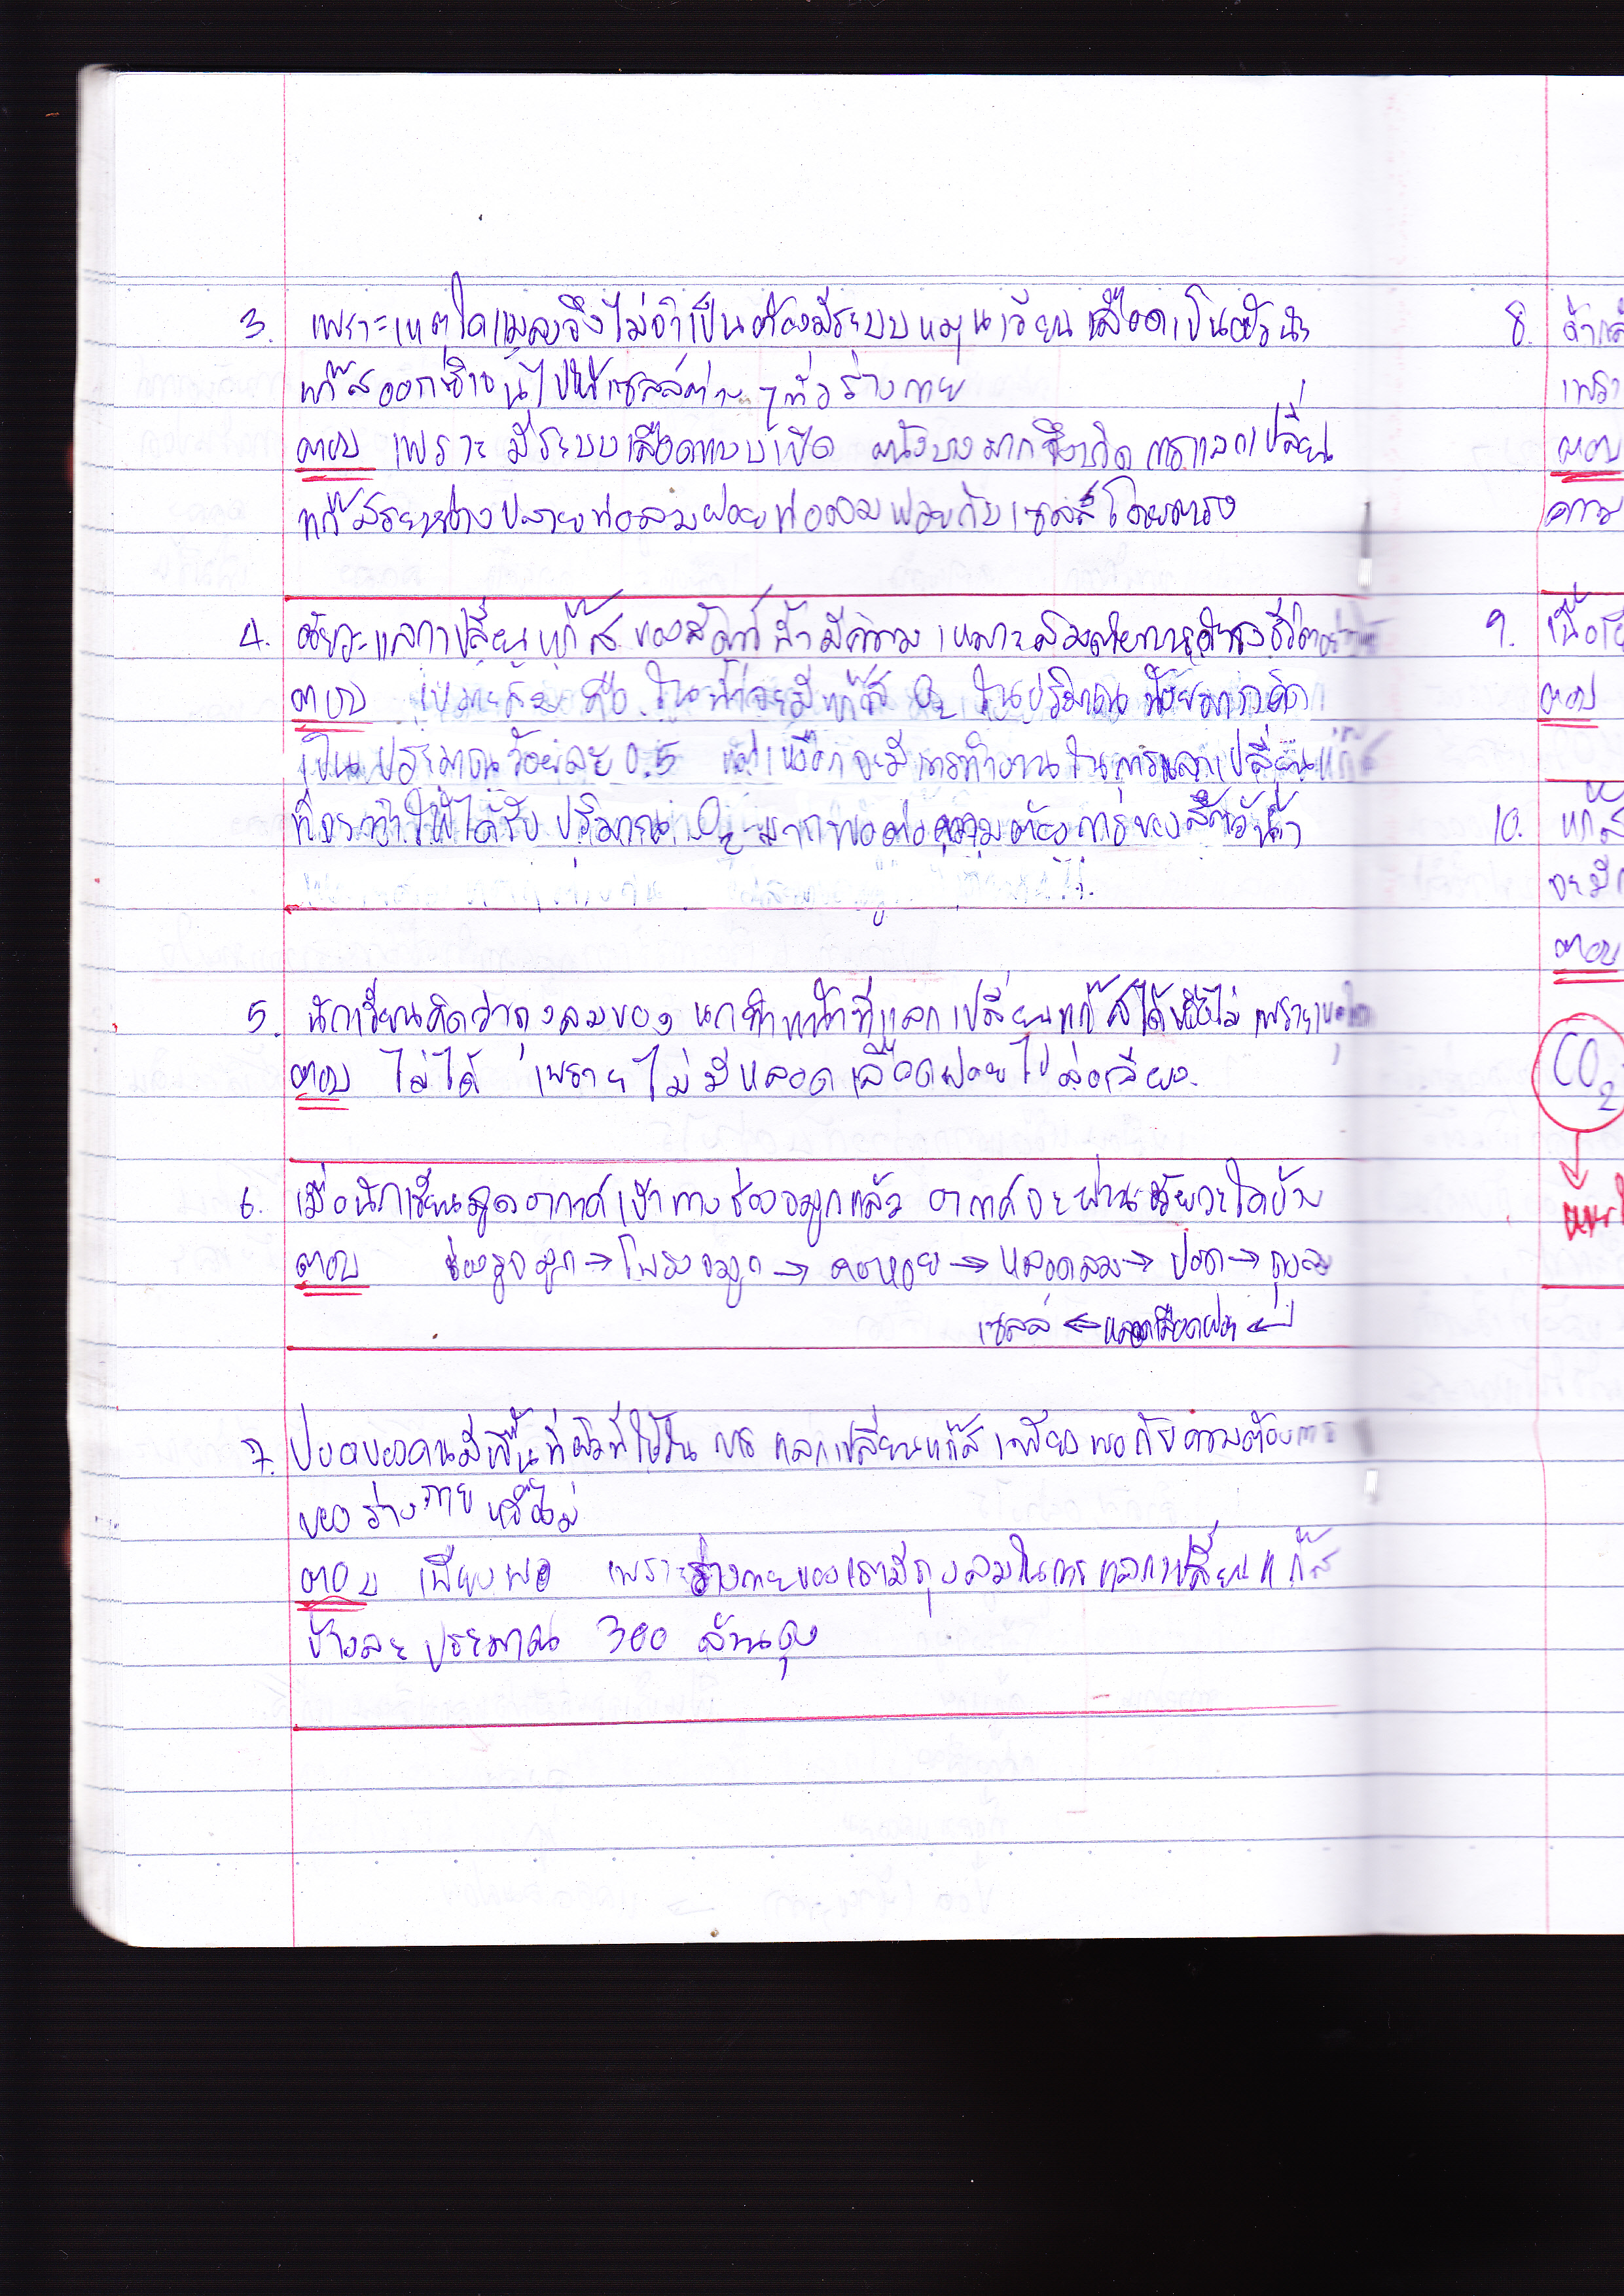 3. เพราะเหตุใดแมลงจึงไม่จำเป็นต้องมีระบบหมุนเวียนเลือดเป็นตัวนำ
แก๊สออกซิเจนไปให้เซลล์ต่าง ๆ ทั่วร่างกาย
ตอบ เพราะ มีระบบเลือดแบบเปิด ผนังบางมากจึงเกิด การแลกเปลี่ยน
แก๊สระหว่างปลายท่อลมฝอยท่อลมฝอยกับเซลล์โดยตรง
4. อวัยวะแลกเปลี่ยนแก๊ส ของสัตว์น้ำมีความเหมาะสมต่อการดำรงชีวิต
ตอบ เหมาะสม คือ ในน้ำจะมีแก๊ส O2 ในปริมาณ น้อยมากคิด
เป็น ประมาณร้อยละ 0.5 แต่เหงือกจะมีการทำงาน ในการแลกเปลี่ยนแก๊ส
ที่จะทำให้ได้รับ ปริมาณ O2 มากพอต่อความต้องการของสัตว์น้ำ
5. นักเรียนคิดว่าถุงลมของ นกทำหน้าที่แลกเปลี่ยนแก๊สได้หรือไม่ เพราะเหตุใด
ตอบ ไม่ได้ เพราะไม่มีหลอดเลือดฝอยไปหล่อเลี้ยง
6. เมื่อนักเรียนสูดอากาศเข้าทางช่องจมูกแล้ว อากาศจะผ่านอวัยวะใดบ้าง
ตอบ ช่องรูจมูก → โพรงจมูก → คอหอย → หลอดลม → ปอด → ถุงลม
เซลล์ ← หลอดเลือดฝอย ←
7. ปอดของคนมีพื้นที่ผิวที่ใช้ใน การ แลกเปลี่ยนแก๊ส เพียงพอกับความต้องการ
ของร่างกาย หรือไม่
ตอบ เพียงพอ เพราะร่างกายของเรามีถุงลมในการแลกเปลี่ยนแก๊ส
ข้างละ ประมาณ 300 ล้านถุง
8.
เพรา
ตอบ
ความ
9.
ตอบ
10. แก๊ส
จะมี
ตอบ
CO2